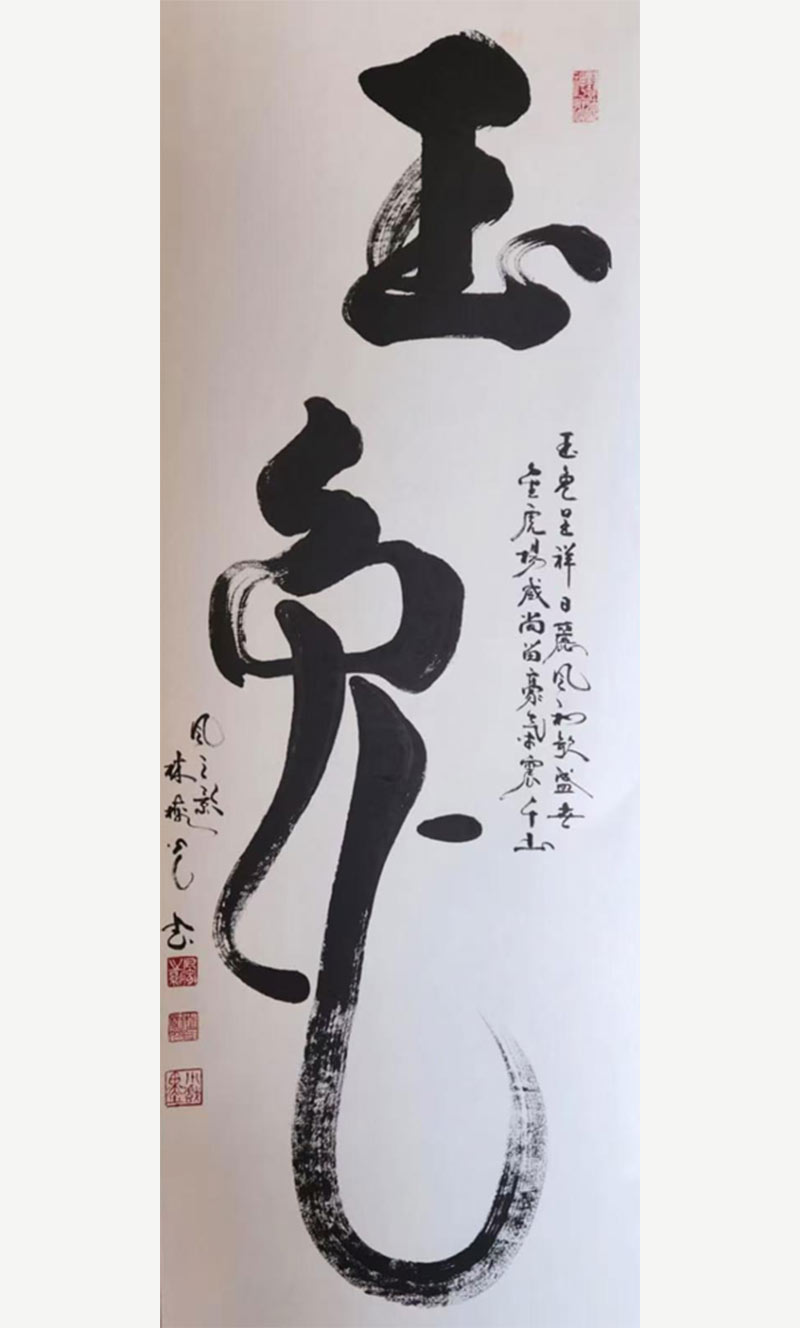 玉兔
玉兔呈祥日麗风和歌盛世
金虎揚威尚留豪气震千山
风之影
林
书